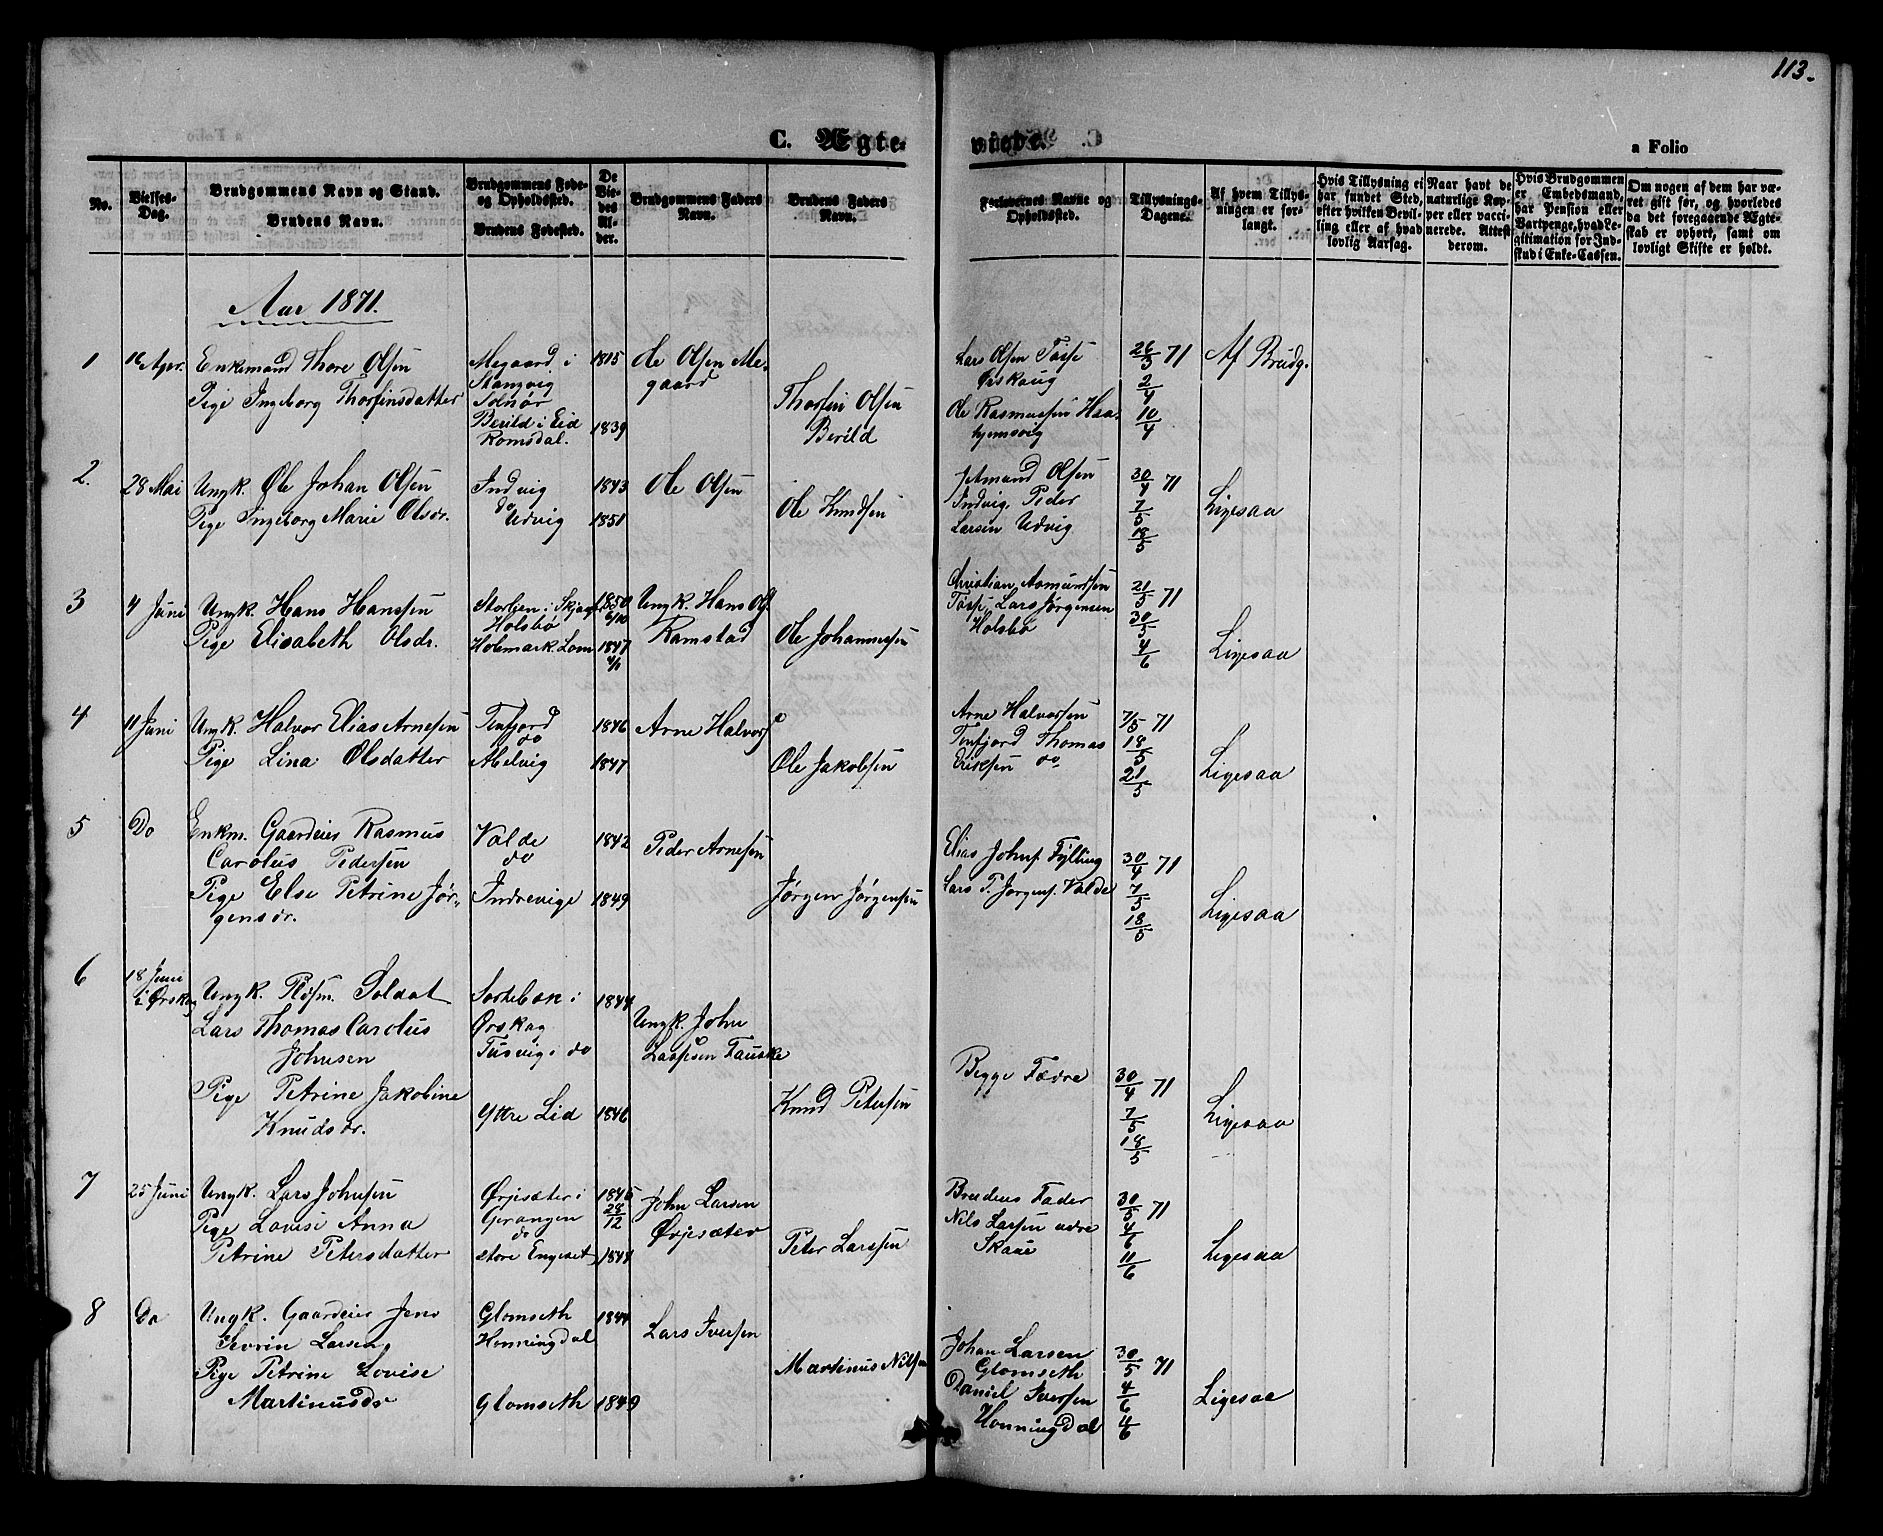 113.
C. Ægte-
viede.
a Folio
No.
Vielses-
Dag.
Brudgommens Navn og Stand.
Brudens Navn.
Brudgommens Føde-
og Opholdssted.
Brudens Fødested.
De
Vie-
des
Al-
der.
Brudgommens Faders
Navn.
Brudens Faders
Navn.
Forlovernes Navne og
Opholdssted.
Tillysnings-
Dagene.
Af hvem Tillys-
ningen er for-
langt.
Hvis Tillysning ei
har fundet Sted,
efter hvilken Bevil-
ling eller af hvad
lovlig Aarsag.
Naar havt de
naturlige Kop-
per eller vacci-
nerede. Attest
derom.
Hvis Brudgommen
er Embedsmand,
har Pension eller
Vartpenge, hvad Le-
gitimation for Ind-
skud i Enke-Cassen.
Om nogen af dem har væ-
ret gift før, og hvorledes
da det foregaaende Ægte-
skab er ophørt, samt om
lovligt Skifte er holdt.
Aar 1871.
1
16 Apr.
Enkemand Thore Olsen
Pige Ingeborg Thorfinsdatter
Megaard i
Stangvig
Berild i Eid
Romsdal.
1815
1839
Ole Olsen Me-
gaard
Thorfin Olsen
Berild
Lars Olsen
Ørskoug
Ole Rasmussen Haa-
hjemsvig
26/3 71
2/4
10/4
Af Brudg.
2.
28 Mai
Ungk. Ole Johan Olsen
Pige Ingeborg Marie Olsdr.
Indvig
do
Udvig
1843
1851
Ole Olsen
Ole Knudsen
Olsen
Indvig, Peder
Larsen Udvig
30/4 71
7/5
18/5
Ligesaa
3
4 Juni
Ungk. Hans Hanssen
Pige Elisabeth Olsdr.
Storlien i Skjag
Holsbø
Holemark Lom
1850
6/10
1847
Ungk. Hans Ols.
Ramstad
Ole Johannessen
Christian Asmundsen
Lars Jørgensen
Holsbø
21/5 71
30/5
4/6
Ligesaa
4
11 Juni
Ungk. Halvor Elias Arnesen
Pige Lina Olsdatter
Tenfjord
do
Abelvig
1846
1847
Arne Halvors
Ole Jakobsen
Arne Halvorsen
Tenfjord Thomas
Eriksen do
7/5 71
18/5
21/5
Ligesaa
5
Do
Enkm. Gaardeier Rasmus
Carolus Pedersen
Pige Else Petrine Jør-
gensdr.
Valde
do
Indrevige
1842
1849
Peder Arnesen
Jørgen Jørgensen
Elias Johns. Fylling
Lars P. Jørgens. Valde
30/4 71
7/5
18/5
Ligesaa
6
18 Juni
i Ørskog
Ungk. Pldsm. Soldat
Lars Thomas Carolus
Johnsen
Pige Petrine Jakobine
Knudsdr.
Sortebæk i
Ørskog
Tusvig do
Yttre Lid
1844
1846
Ungk. John
Larssen Fauske
Knud Petersen
Begge Fædre
30/4 71
7/5
18/5
Ligesaa
7
25 Juni
Ungk. Lars Johnsen
Pige Lovise Anna
Petrine Petersdatter
Ørjesæter i
Gerangen
do
store Engeset
1845
28/12
1844
John Larsen
Ørjesæter
Peter Larssen
Brudens Fader
Nils Larsen
30/5 71
4/6
11/6
Ligesaa
8
Do
Ungk. Gaardeier Jens
Sevrin Larsen
Pige Petrine Lovise
Martinusdr
Glomseth
Honningdal
Glomseth
1844
1849
Lars Iversen
Martinus Nilsen
Johan Larsen
Glomseth
Daniel Iversen
Honningdal
30/5 71
4/6
4/6
Ligesaa